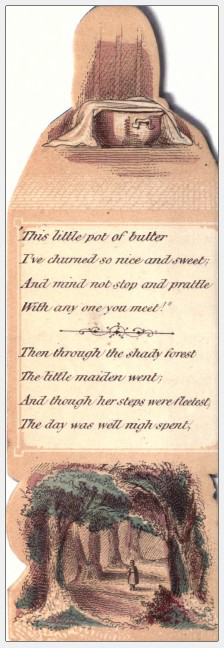 "This little pot of butter
I've churned so nice and sweet;
And mind not stop and prattle
With any one you meet!"
Then through the shady forest
The little maiden went;
And though her steps were fleetest,
The day was well nigh spent;